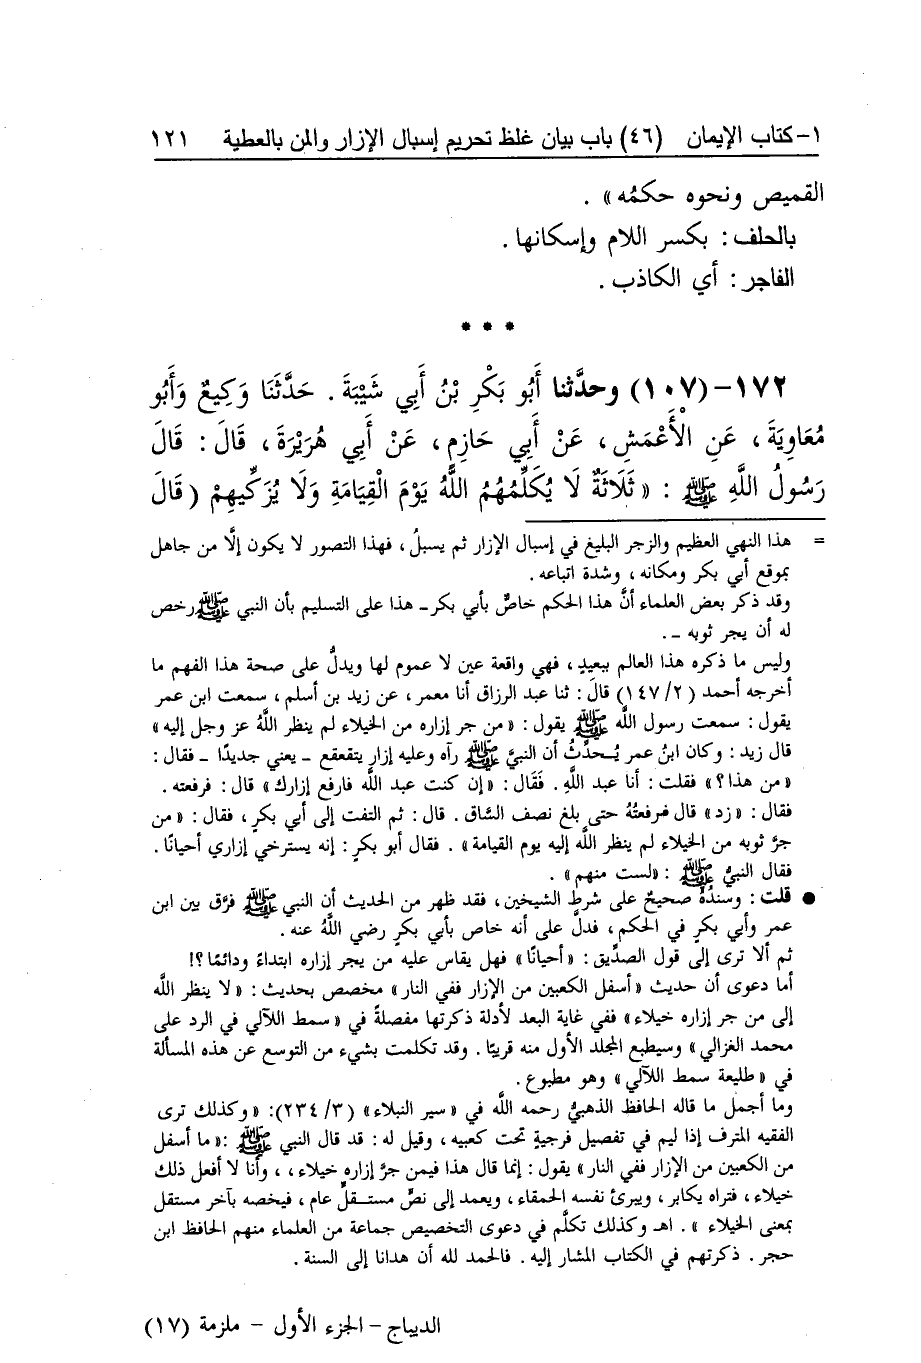 ١- كتاب الإيمان (٤٦) باب بيان غلظ تحريم إسبال الإزار والمن بالعطية ١٢١
القميص ونحوه حكمُه» .
بالحلف : بكسر اللام وإسكانها .
الفاجر : أي الكاذب .
* * *
١٧٢-(١٠٧) وحدَّثنا أَبُو بَكْرِ بْنُ أَبِي شَيْبَةَ . حَدَّثَنَا وَكِيعٌ وَأَبُو
مُعَاوِيَةَ ، عَنِ الْأَعْمَشِ ، عَنْ أَبِي حَازِمٍ ، عَنْ أَبِي هُرَيْرَةَ ، قَالَ : قَالَ
رَسُولُ اللَّهِ ﷺ : « ثَلَاثَةٌ لَا يُكَلِّمُهُمُ اللَّهُ يَوْمَ الْقِيَامَةِ وَلَا يُزَكِّيهِمْ ( قَالَ
= هذا النهي العظيم والزجر البليغ في إسبال الإزار ثم يسبلُ ، فهذا التصور لا يكون إلَّا من جاهل
بموقع أبي بكر ومكانه ، وشدة اتباعه .
وقد ذكر بعض العلماء أنَّ هذا الحكم خاصٌّ بأبي بكر ـ هذا على التسليم بأن النبي ﷺ رخص
له أن يجر ثوبه ـ .
وليس ما ذكره هذا العالم ببعيدٍ ، فهي واقعة عين لا عموم لها ويدلُّ على صحة هذا الفهم ما
أخرجه أحمد (٢/ ١٤٧) قالَ : ثنا عبد الرزاق أنا معمر ، عن زيد بن أسلم ، سمعت ابن عمر
يقول : سمعت رسول الله ﷺ يقول : « من جر إزاره من الخيلاء لم ينظر اللَّهُ عز وجل إليه »
قال زيد : وكان ابنُ عمر يُـحدِّثُ أن النبيَّ ﷺ رآه وعليه إزار يتقعقع ـ يعني جديدًا ـ فقال :
« من هذا ؟ » فقلت : أنا عبد اللَّهِ . فَقَال : «إن كنت عبد اللَّه فارفع إزارك» قال : فرفعته .
فقال : « زد » قال فرفعتُهُ حتى بلغ نصف السَّاق . قال : ثم التفت إلى أبي بكرٍ ، فقال : « من
جرَّ ثوبه من الخيلاء لم ينظر اللَّه إليه يوم القيامة » . فقال أبو بكرٍ : إنه يسترخي إزاري أحيانًا .
فقال النبيُّ ﷺ : «لست منهم» .
● قلت : وسندُهُ صحيحٌ على شرط الشيخين ، فقد ظهر من الحديث أن النبي ﷺ فرَّق بين ابن
عمر وأبي بكرٍ في الحكم ، فدلَّ على أنه خاص بأبي بكرٍ رضي اللَّهُ عنه .
ثم ألا ترى إلى قول الصدِّيق : « أحيانًا » فهل يقاس عليه من يجر إزاره ابتداءً ودائمًا ؟!
أما دعوى أن حديث « أسفل الكعبين من الإزار ففي النار » مخصص بحديث : « لا ينظر اللَّه
إلى من جر إزاره خيلاء » ففي غاية البعد لأدلة ذكرتها مفصلةً في « سمط اللآلي في الرد على
محمد الغزالي » وسيطبع المجلد الأول منه قريبًا . وقد تكلمت بشيء من التوسع عن هذه المسألة
في « طليعة سمط اللآلي » وهو مطبوع .
وما أجمل ما قاله الحافظ الذهبيُّ رحمه اللَّه في « سير النبلاء » (٣/ ٢٣٤): « وكذلك ترى
الفقيه المترف إذا ليم في تفصيل فرجيةٍ تحت كعبيه ، وقيل له : قد قال النبي ﷺ :« ما أسفل
من الكعبين من الإزار ففي النار » يقول : إنما قال هذا فيمن جرَّ إزاره خيلاء ، ، وأنا لا أفعل ذلك
خيلاء ، فتراه يكابر ، ويبرئ نفسه الحمقاء ، ويعمد إلى نصٍّ مستـقلٍّ عام ، فيخصه بآخر مستقل
بمعنى الخيلاء » . اهـ وكذلك تكلَّم في دعوى التخصيص جماعة من العلماء منهم الحافظ ابن
حجر . ذكرتهم في الكتاب المشار إليه . فالحمد لله أن هدانا إلى السنة .
الديباج - الجزء الأول - ملزمة (١٧)